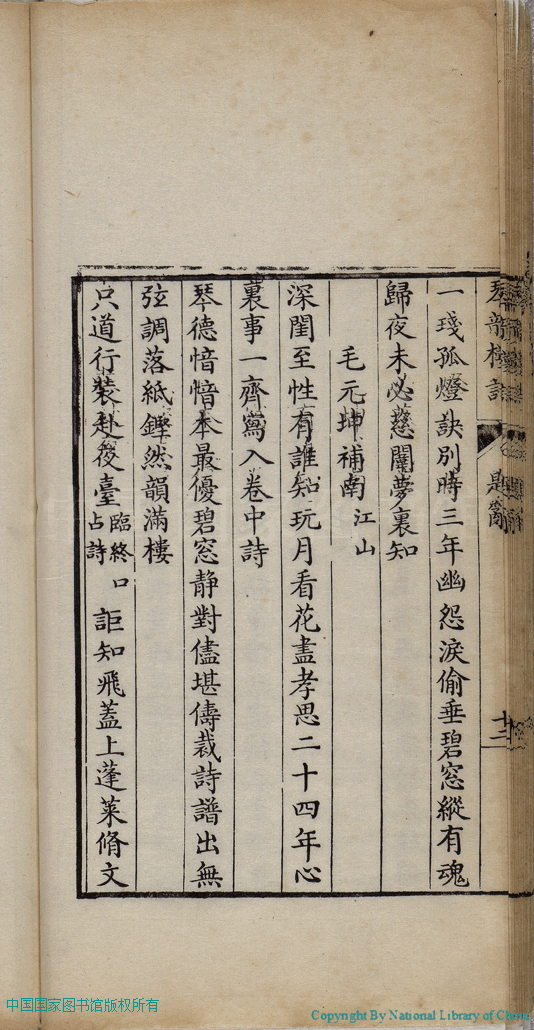 題辭
一琖孤燈訣別時三年幽怨淚偷垂碧窓縱有魂
歸夜未必慈闈夢裏知
毛元坤補南江山
深閨至性有誰知玩月看花盡孝思二十四年心
裏事一齊寫入卷中詩
琴德愔愔本最優碧窓静對儘堪儔裁詩譜出無
弦調落紙鏗然韻滿樓
只道行裝赴夜臺臨終口占詩詎知飛蓋上蓬萊脩文
中国国家图书馆版权所有
Copyright By National Library of China